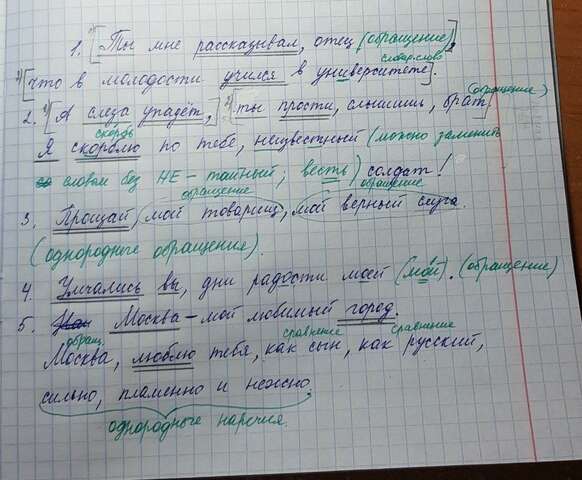 1. 1)[Ты мне рассказывал, отец (обращение)],
словар.слово
2)[что в молодости учился в университете].
2. 1)[А слеза упадёт,] 2)[ты прости, слышишь, брат] (обращение)
скорбь
Я скорблю по тебе, неизвестный (можно заменить
словом без НЕ - тайный; весть) солдат!
обращение обращение
3. Прощай, мой товарищ, мой верный слуга.
(однородные обращение).
4. Умчались вы, дни радости моей (мой). (обращение)
5. Москва - мой любимый город.
обращ. сравнение сравнение
Москва, люблю тебя, как сын, как русский,
сильно, пламенно и нежно.
однородные наречия.